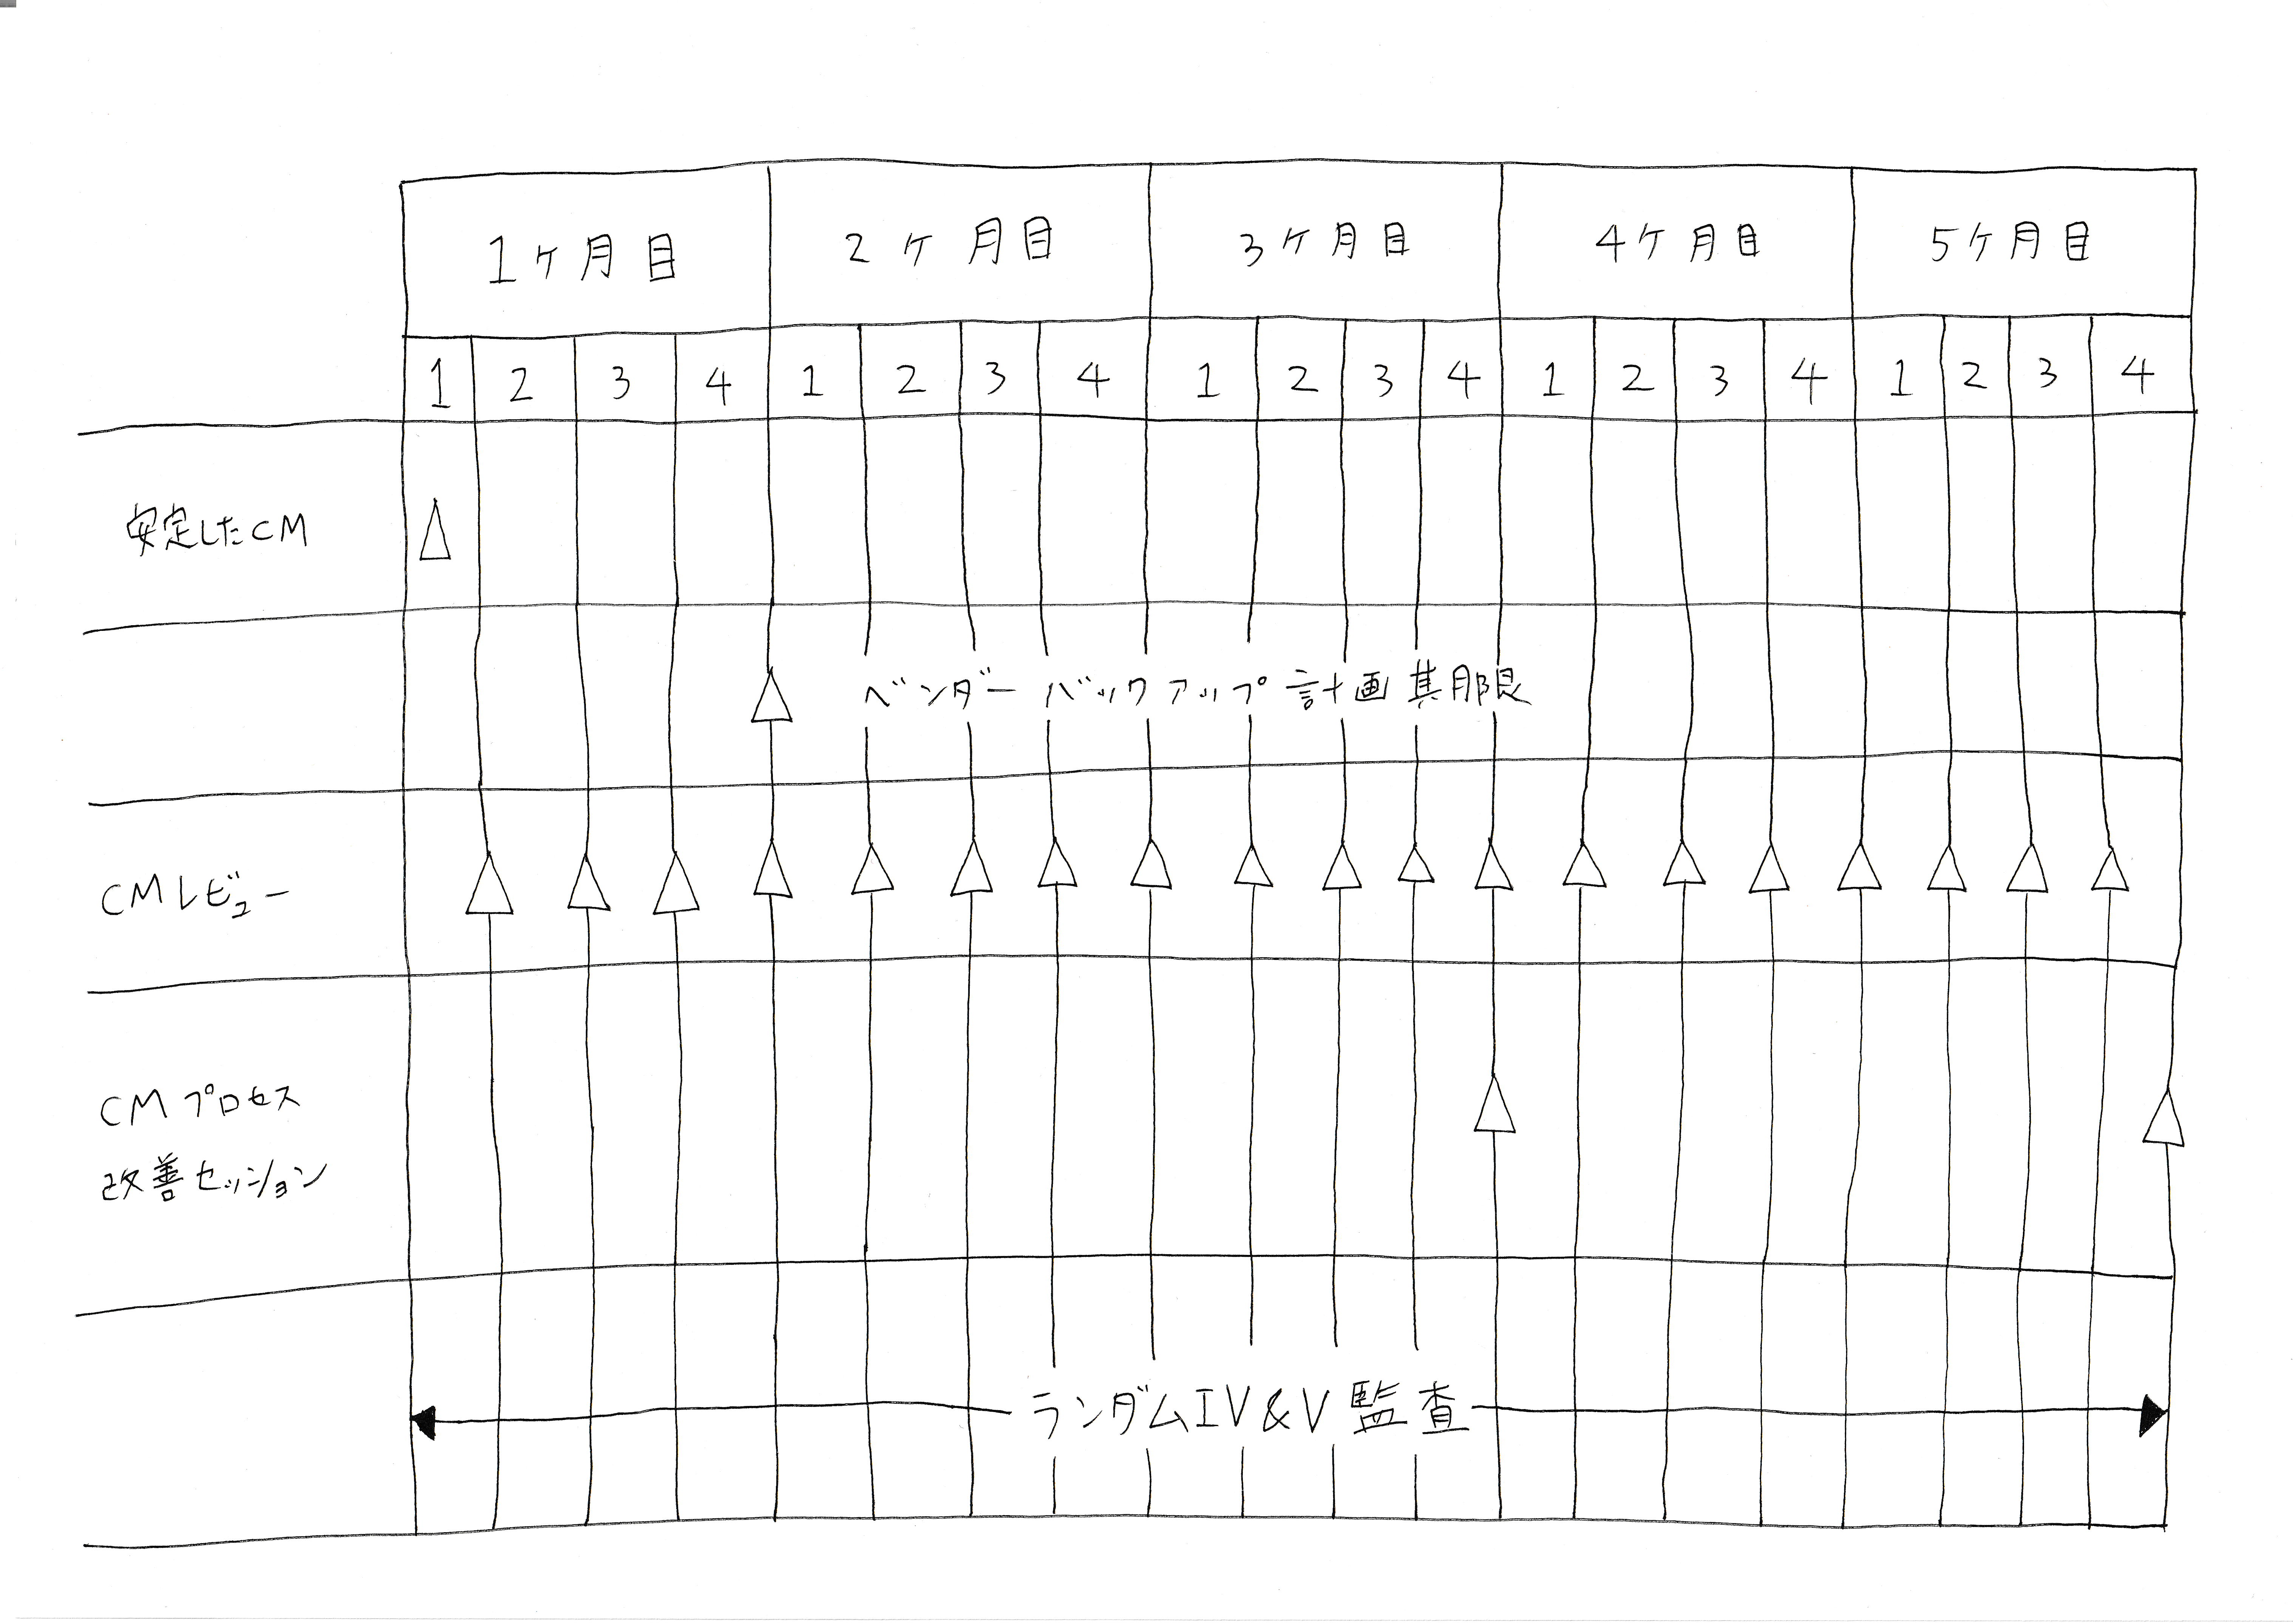 1ヶ月目 2ヶ月目 3ヶ月目 4ヶ月目 5ヶ月目
1 2 3 4 1 2 3 4 1 2 3 4 1 2 3 4 1 2 3 4
安定したCM
ベンダーバックアップ計画期限
CMレビュー
CMプロセス
改善セッション
ランダムIV&V監査